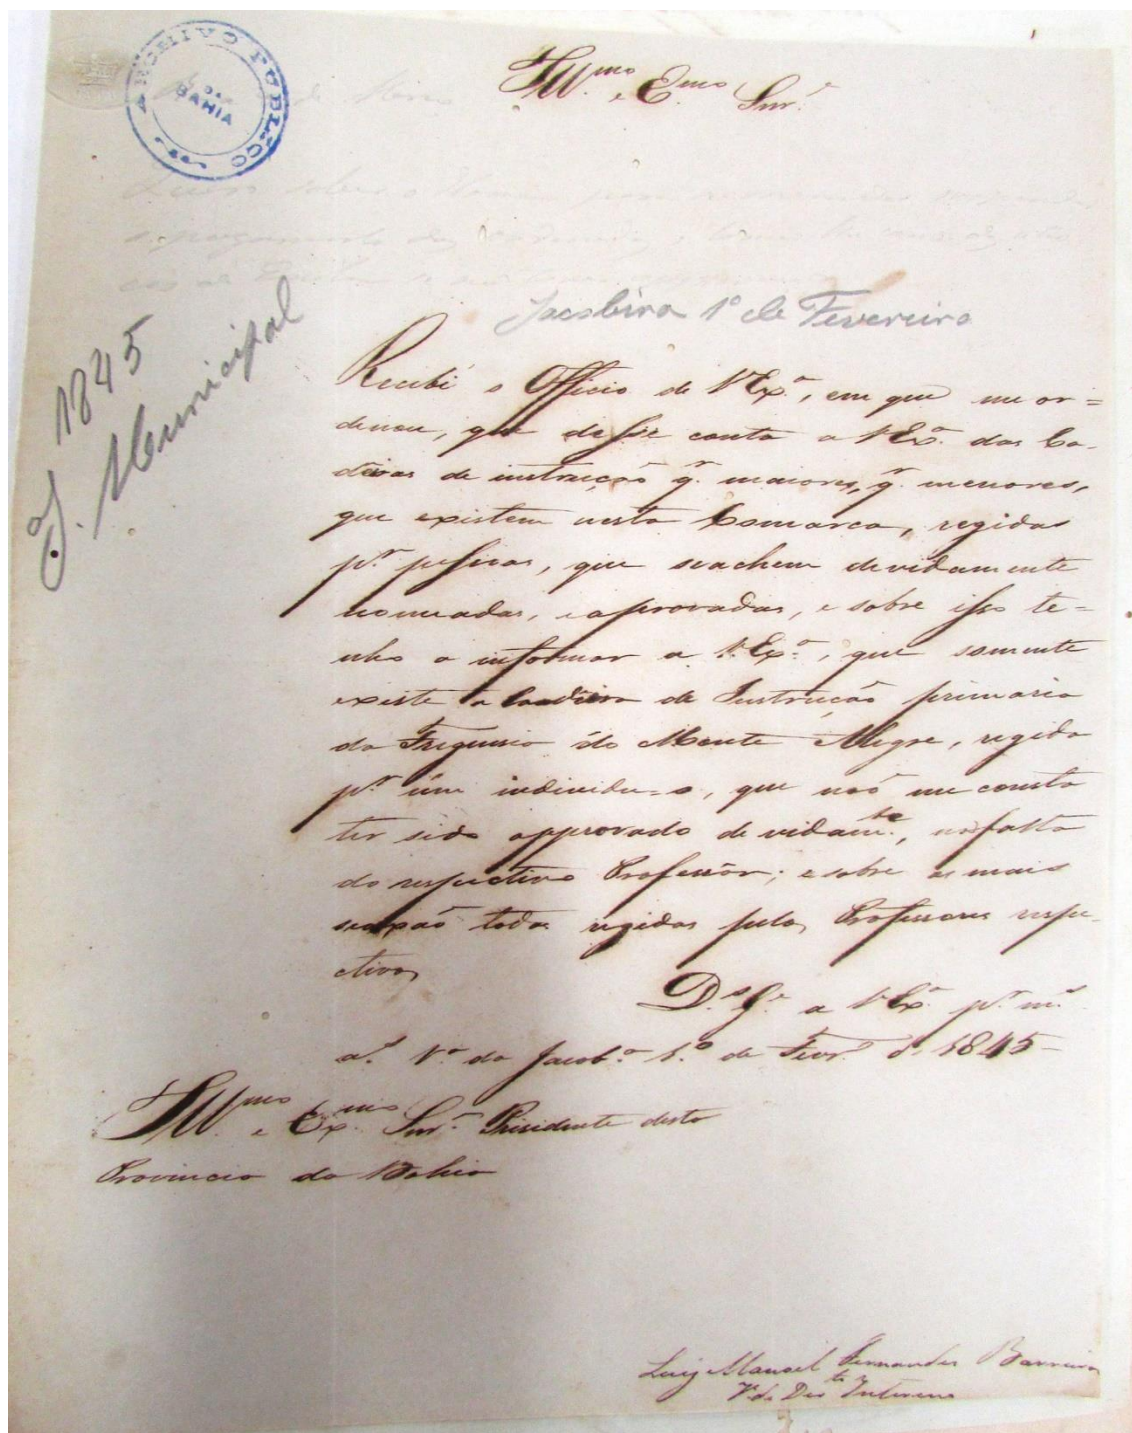 ARCHIVO PUBLICO
DA
BAHIA
Ill.mo e E.mo Snr.
Jacobina 1º de Fevereiro
1845
J. Municipal
Recibi o Officio de V Ex.ª, em que me or=
denou, que désse conta a V Ex.ª das Ca-
deiras de instrucção q.r maiores, q.r menores,
que existem nesta Comarca, regidas
p.r pessoas, que seachem devidamente
nomeadas, e aprovadas, e sobre isso te=
nho a informar a V. Ex.ª, que somente
existe a Cadeira de Instrucção primaria
da Freguesia do Monte Alegre, regida
p.r úm individu=o, que naõ me consta
ter sido approvado devidam.te, na falta
do respectivo Professôr; e sobre as mais
todas regidas pelos Professores respe-
ctivos
D.s G.e a V Ex.ª p.r m.s
a.s V.ª da Jacob.ª 1.º de Fevr.º d. 1845-
Ill.mo e Ex.mo Snr. Presidente desta
Provincia da Bahia
Luiz Manoel Fernandes Barreiro
de Dir.to Interino